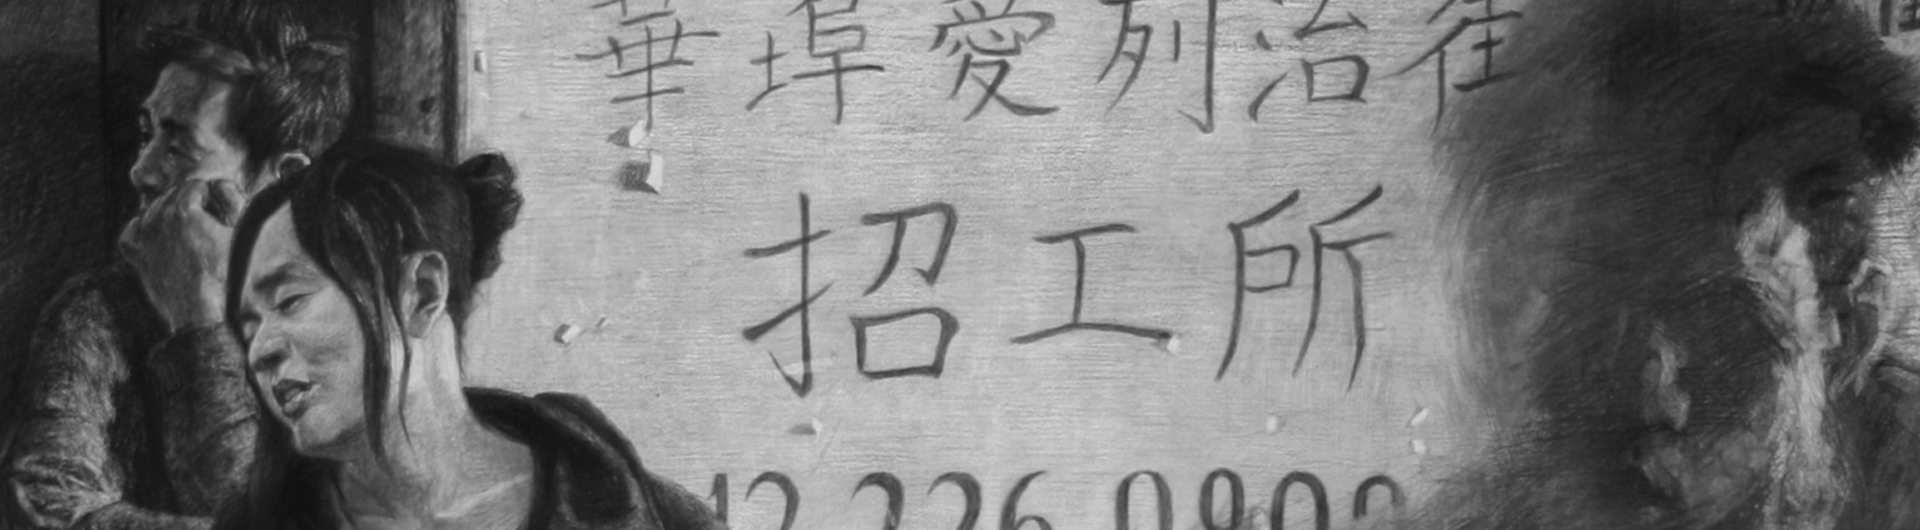 華埠愛列治街
招工所
12 226